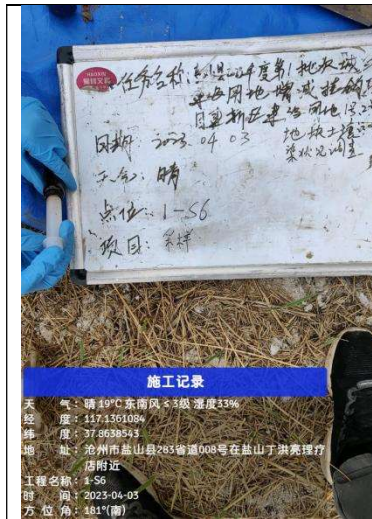 任务名称：盐山县2022年度第1批次城乡
建设用地增减挂钩项
目建新区建设用地
地块土壤污
染状况调查
日期：2023.04.03
天气：晴
点位：1-S6
项目：采样
施工记录
天 气：晴 19℃ 东南风 ≤3级 湿度33%
经 度：117.1361084
纬 度：37.8638543
地 址：沧州市盐山县283省道008号在盐山丁洪亮理疗
店附近
工程名称：1-S6
时 间：2023-04-03
方 位 角：181°(南)